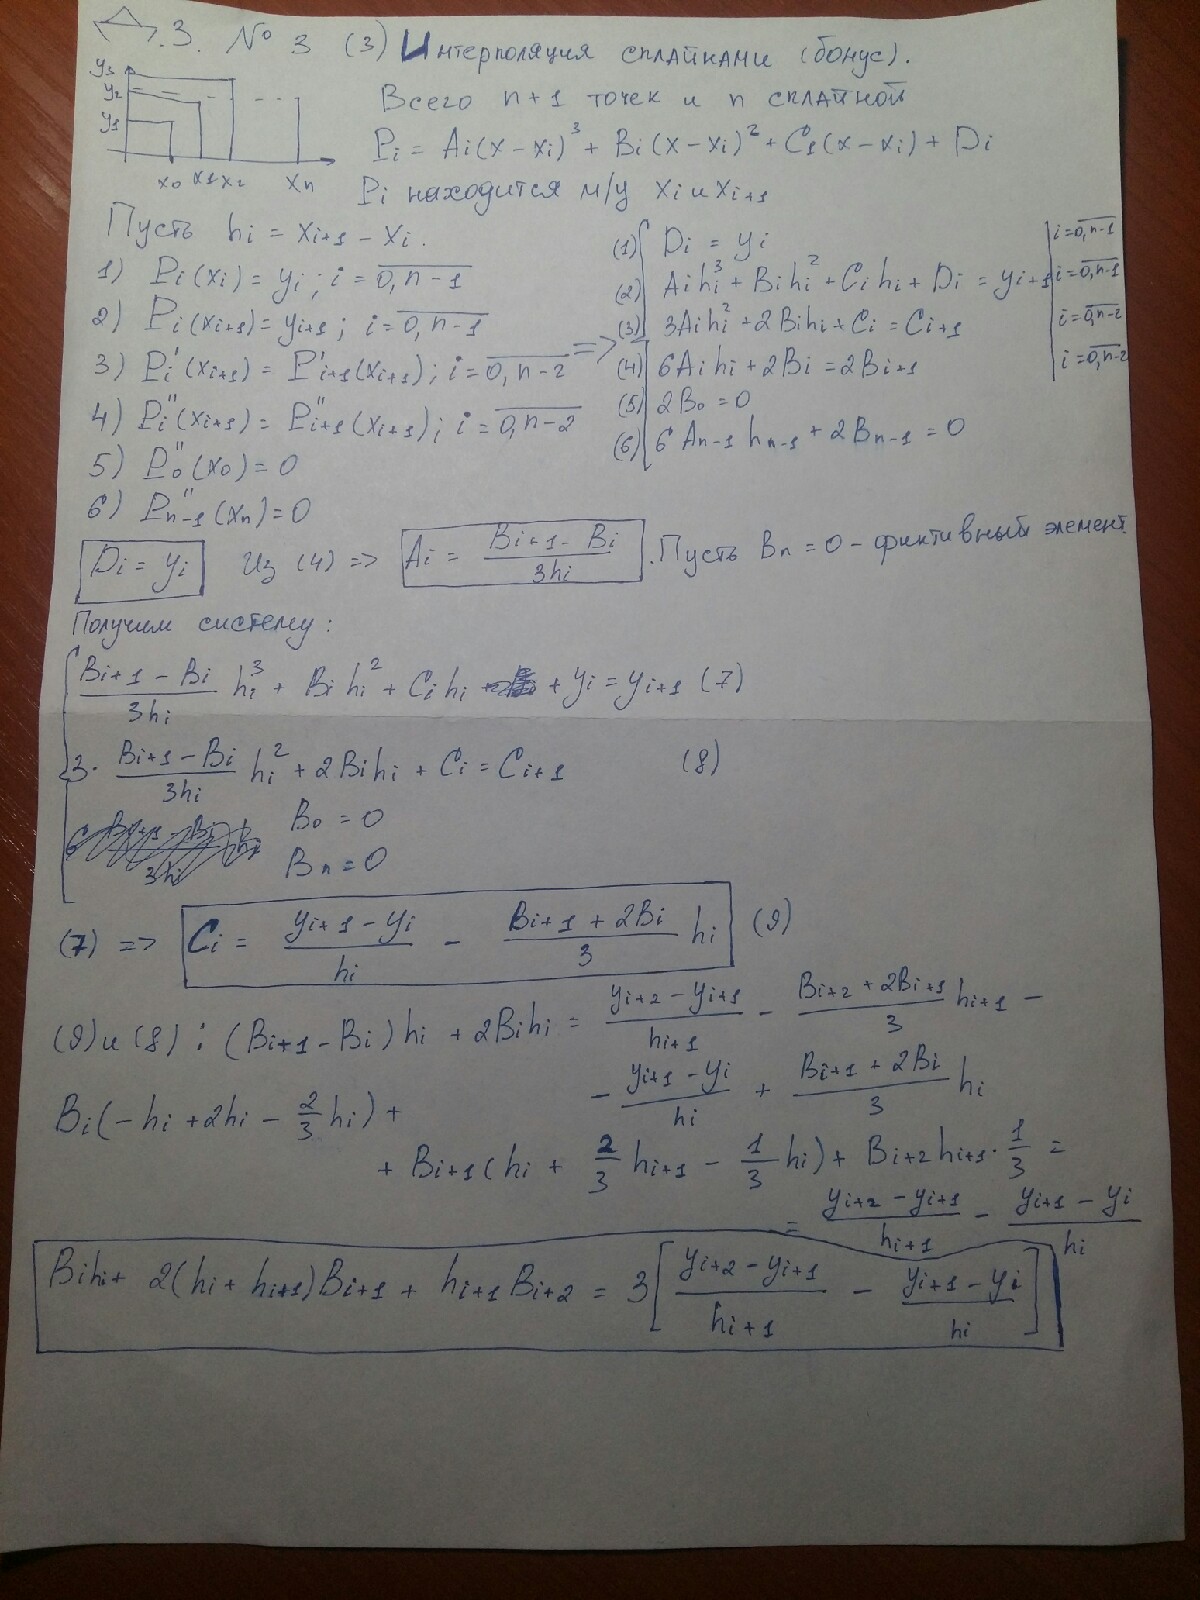 Д.З. № 3 (3) Интерполяция сплайнами (бонус).
y3
y2
y1
x0 x1 x2 xn
Всего n+1 точек и n сплайной
Pi = Ai(x – xi)³ + Bi(x – xi)² + C1(x – xi) + Di
Pi находится м/у xi и xi+1
Пусть hi = xi+1 – xi.
1) Pi(xi) = yi ; i = 0, n-1
2) Pi(xi+1) = yi+1 ; i = 0, n-1
3) Pi'(xi+1) = P'i+1(xi+1) ; i = 0, n-2
4) Pi''(xi+1) = P''i+1(xi+1) ; i = 0, n-2
5) P0''(x0) = 0
6) P''n-1(xn) = 0
=>
(1) Di = yi | i = 0, n-1
(2) Aihi³ + Bihi² + Cihi + Di = yi+1 | i = 0, n-1
(3) 3Aihi² + 2Bihi + Ci = Ci+1 | i = 0, n-2
(4) 6Aihi + 2Bi = 2Bi+1 | i = 0, n-2
(5) 2B0 = 0
(6) 6An-1 hn-1 + 2Bn-1 = 0
Di = yi Из (4) => Ai = (Bi+1 - Bi)/(3hi) . Пусть Bn = 0 – фиктивный элемент
Получим систему:
(Bi+1 – Bi)/(3hi) hi³ + Bi hi² + Ci hi + yi = yi+1 (7)
3· (Bi+1 – Bi)/(3hi) hi² + 2Bihi + Ci = Ci+1 (8)
B0 = 0
Bn = 0
(7) => Ci = (yi+1 – yi)/hi – (Bi+1 + 2Bi)/3 hi (9)
(9) и (8) : (Bi+1 - Bi)hi + 2Bihi = (yi+2 – yi+1)/hi+1 – (Bi+2 + 2Bi+1)/3 hi+1 –
– (yi+1 – yi)/hi + (Bi+1 + 2Bi)/3 hi
Bi(–hi + 2hi – 2/3 hi) +
+ Bi+1(hi + 2/3 hi+1 – 1/3 hi) + Bi+2hi+1 · 1/3 =
= (yi+2 – yi+1)/hi+1 – (yi+1 – yi)/hi
Bihi + 2(hi + hi+1)Bi+1 + hi+1Bi+2 = 3[(yi+2 – yi+1)/hi+1 – (yi+1 – yi)/hi]